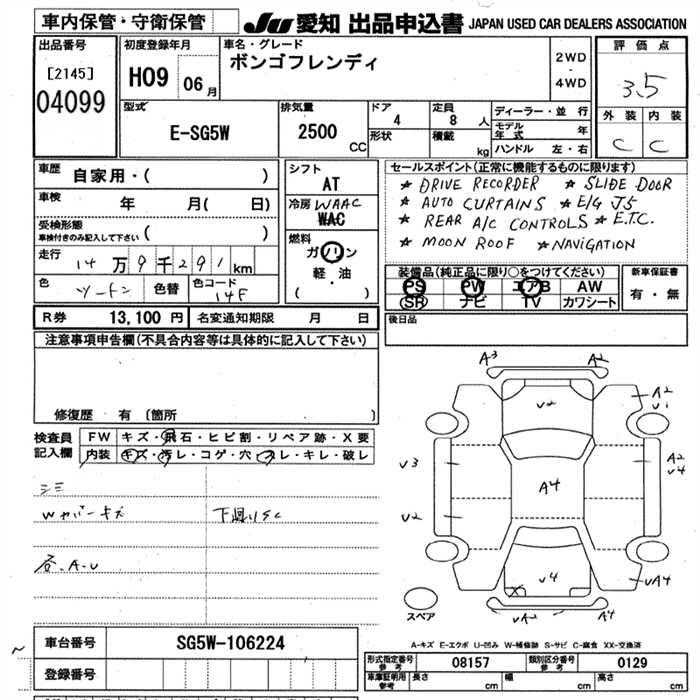 車内保管・守衛保管
JU 愛知 出品申込書 JAPAN USED CAR DEALERS ASSOCIATION
出品番号
[2145]
04099
初度登録年月
H09 06 月
車名・グレード
ボンゴフレンディ
2WD
・
4WD
評価点
3.5
型式
E-SG5W
排気量
2500 CC
ドア
4
形状
定員
8 人
積載
kg
ディーラー・並行
モデル年式 年
ハンドル 左・右
外装 内装
C C
車歴 自家用・( )
車検 年 月( 日)
受検形態
車検付きのみ記入して下さい ( )
走行 14万9千291 km
色 ツートン 色替 色コード 14F
シフト
AT
冷房 WAAC
WAC
燃料
ガソリン
軽・油
( )
セールスポイント(正常に機能するものに限ります)
★ DRIVE RECORDER ★ SLIDE DOOR
★ AUTO CURTAINS ★ E/G J5
★ REAR A/C CONTROLS ★ E.T.C.
★ MOON ROOF ★ NAVIGATION
装備品(純正品に限り○をつけてください)
PS PW エアB AW
SR ナビ TV カワシート
新車保証書
有・無
R券 13,100 円 名変通知期限 月 日
後日品
注意事項申告欄(不具合内容等は具体的に記入して下さい)
修復歴 有〔箇所 〕
検査員
記入欄
FW キズ・飛石・ヒビ割・リペア跡・X要
内装 キズ・汚レ・コゲ・穴・スレ・キレ・破レ
シミ
Wカバーキズ 下廻りSC
各.A.U
A3 A2
V2
A2
V1
V3
A2
V4
A4
V2
V4
VA4
VA2 A4
スペア
A-キズ E-エクボ U-凹み W-補修跡 S-サビ C-腐食 XX-交換済
車台番号 SG5W-106224
登録番号
形式指定番号
参考
08157
類別区分番号
参考
0129
車庫証明用
参考
長さ cm 幅 cm 高さ cm